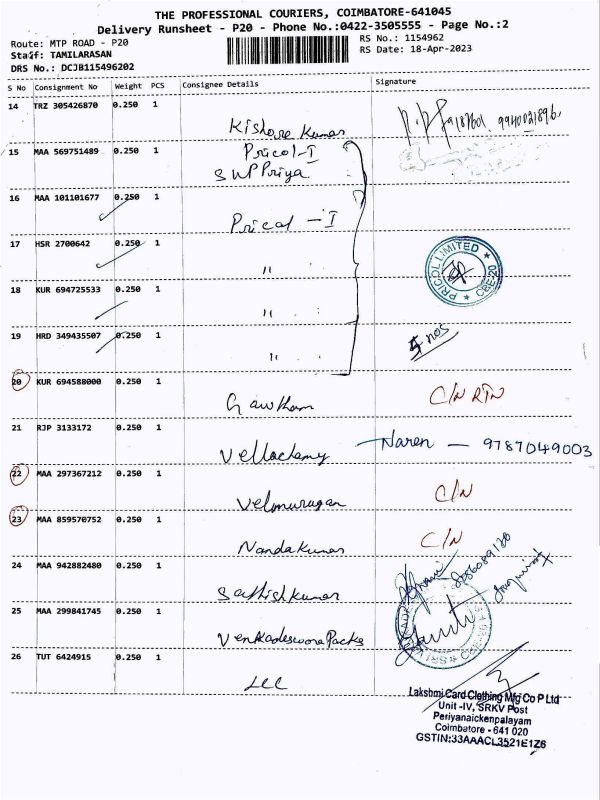 THE PROFESSIONAL COURIERS, COIMBATORE-641045
Delivery Runsheet - P20 - Phone No.:0422-3505555 - Page No.:2
Route: MTP ROAD - P20
Staff: TAMILARASAN
DRS No.: DCJB115496202
RS No.: 1154962
RS Date: 18-Apr-2023
S No Consignment No Weight PCS Consignee Details Signature
14 TRZ 305426870 0.250 1
Kishore Kumar
15 MAA 569751489 0.250 1
Pricol-I
SWP Priya
16 MAA 101101677 0.250 1
Prical -I
17 HSR 2700642 0.250 1
"
PRICOL LIMITED ★ CBE-20 ★
18 KUR 694725533 0.250 1
"
19 HRD 349435507 0.250 1
"
5 nos
20 KUR 694588000 0.250 1
Gawtham
C/N RTN
21 RJP 3133172 0.250 1
Vellachamy
Naren - 9787049003
22 MAA 297367212 0.250 1
Velmurugan
C/N
23 MAA 859570752 0.250 1
Nandakumar
C/N
24 MAA 942882480 0.250 1
Sathishkumar
25 MAA 299841745 0.250 1
Venkadeswora Packs
26 TUT 6424915 0.250 1
LCC
Lakshmi Card Clothing Mfg Co P Ltd
Unit -IV, SRKV Post
Periyanaickenpalayam
Coimbatore - 641 020
GSTIN:33AAACL3521E1Z6